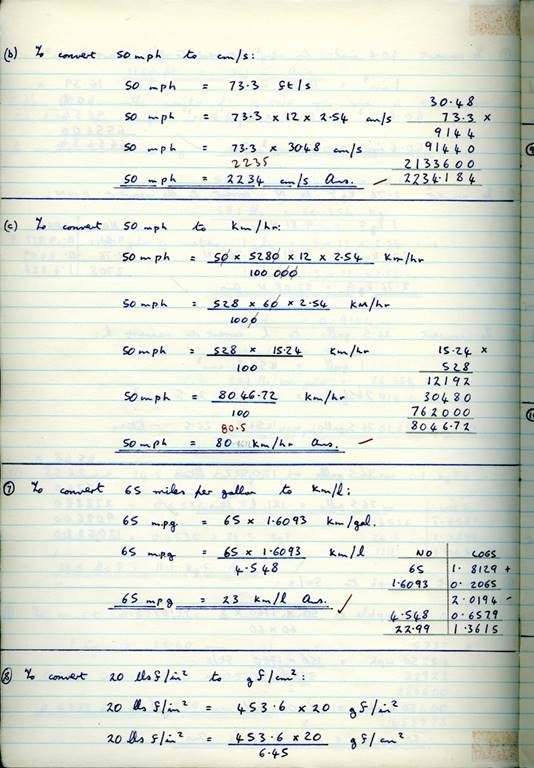 (b) To convert 50 mph to cm/s:
50 mph = 73.3 ft/s
50 mph = 73.3 × 12 × 2.54 cm/s
50 mph = 73.3 × 3048 cm/s
2235
50 mph = 2234 cm/s Ans.
30.48
73.3 ×
9144
91440
2133600
2234.184
(c) To convert 50 mph to Km/hr:
50 mph = 50 × 5280 × 12 × 2.54 Km/hr
100 000
50 mph = 528 × 60 × 2.54 KM/hr
1000
50 mph = 528 × 15.24 Km/hr
100
50 mph = 8046.72 Km/hr
100
80.5
50 mph = 80 Km/hr Ans.
15.24 ×
528
12192
30480
762000
8046.72
(7) To convert 65 miles per gallon to Km/l:
65 mpg = 65 × 1.6093 Km/gal.
65 mpg = 65 × 1.6093 Km/l
4.548
65 mpg = 23 Km/l Ans.
NO LOGS
65 1.8129 +
1.6093 0.2065
2.0194 -
4.548 0.6579
22.99 1.3615
(8) To convert 20 lbs f/in² to gf/cm²:
20 lbs f/in² = 453.6 × 20 gf/in²
20 lbs f/in² = 453.6 × 20 gf/cm²
6.45